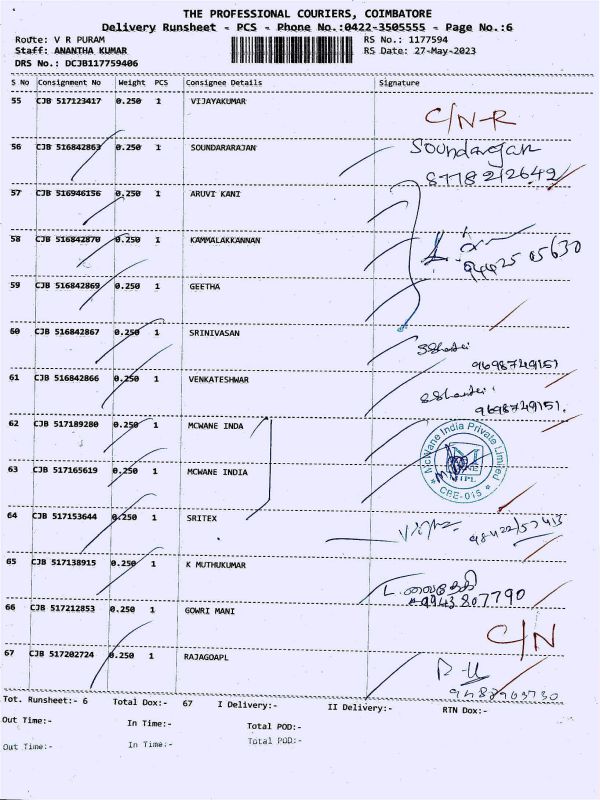 THE PROFESSIONAL COURIERS, COIMBATORE
Delivery Runsheet - PCS - Phone No.:0422-3505555 - Page No.:6
Route: V R PURAM RS No.: 1177594
Staff: ANANTHA KUMAR RS Date: 27-May-2023
DRS No.: DCJB117759406
S No Consignment No Weight PCS Consignee Details Signature
55 CJB 517123417 0.250 1 VIJAYAKUMAR C/N-R
56 CJB 516842863 0.250 1 SOUNDARARAJAN Soundarajan
8778212642
57 CJB 516946156 0.250 1 ARUVI KANI
58 CJB 516842870 0.250 1 KAMMALAKKANNAN
94425 05630
59 CJB 516842869 0.250 1 GEETHA
60 CJB 516842867 0.250 1 SRINIVASAN
9698749151
61 CJB 516842866 0.250 1 VENKATESHWAR
9698749151.
62 CJB 517189280 0.250 1 MCWANE INDA
McWane India Private Limited
MIPL
CBE-015
63 CJB 517165619 0.250 1 MCWANE INDIA
64 CJB 517153644 0.250 1 SRITEX
98422/57413
65 CJB 517138915 0.250 1 K MUTHUKUMAR
9943807790
66 CJB 517212853 0.250 1 GOWRI MANI C/N
67 CJB 517202724 0.250 1 RAJAGOAPL
Tot. Runsheet:- 6 Total Dox:- 67 I Delivery:- II Delivery:- RTN Dox:-
Out Time:- In Time:- Total POD:-
Out Time:- In Time:- Total POD:-